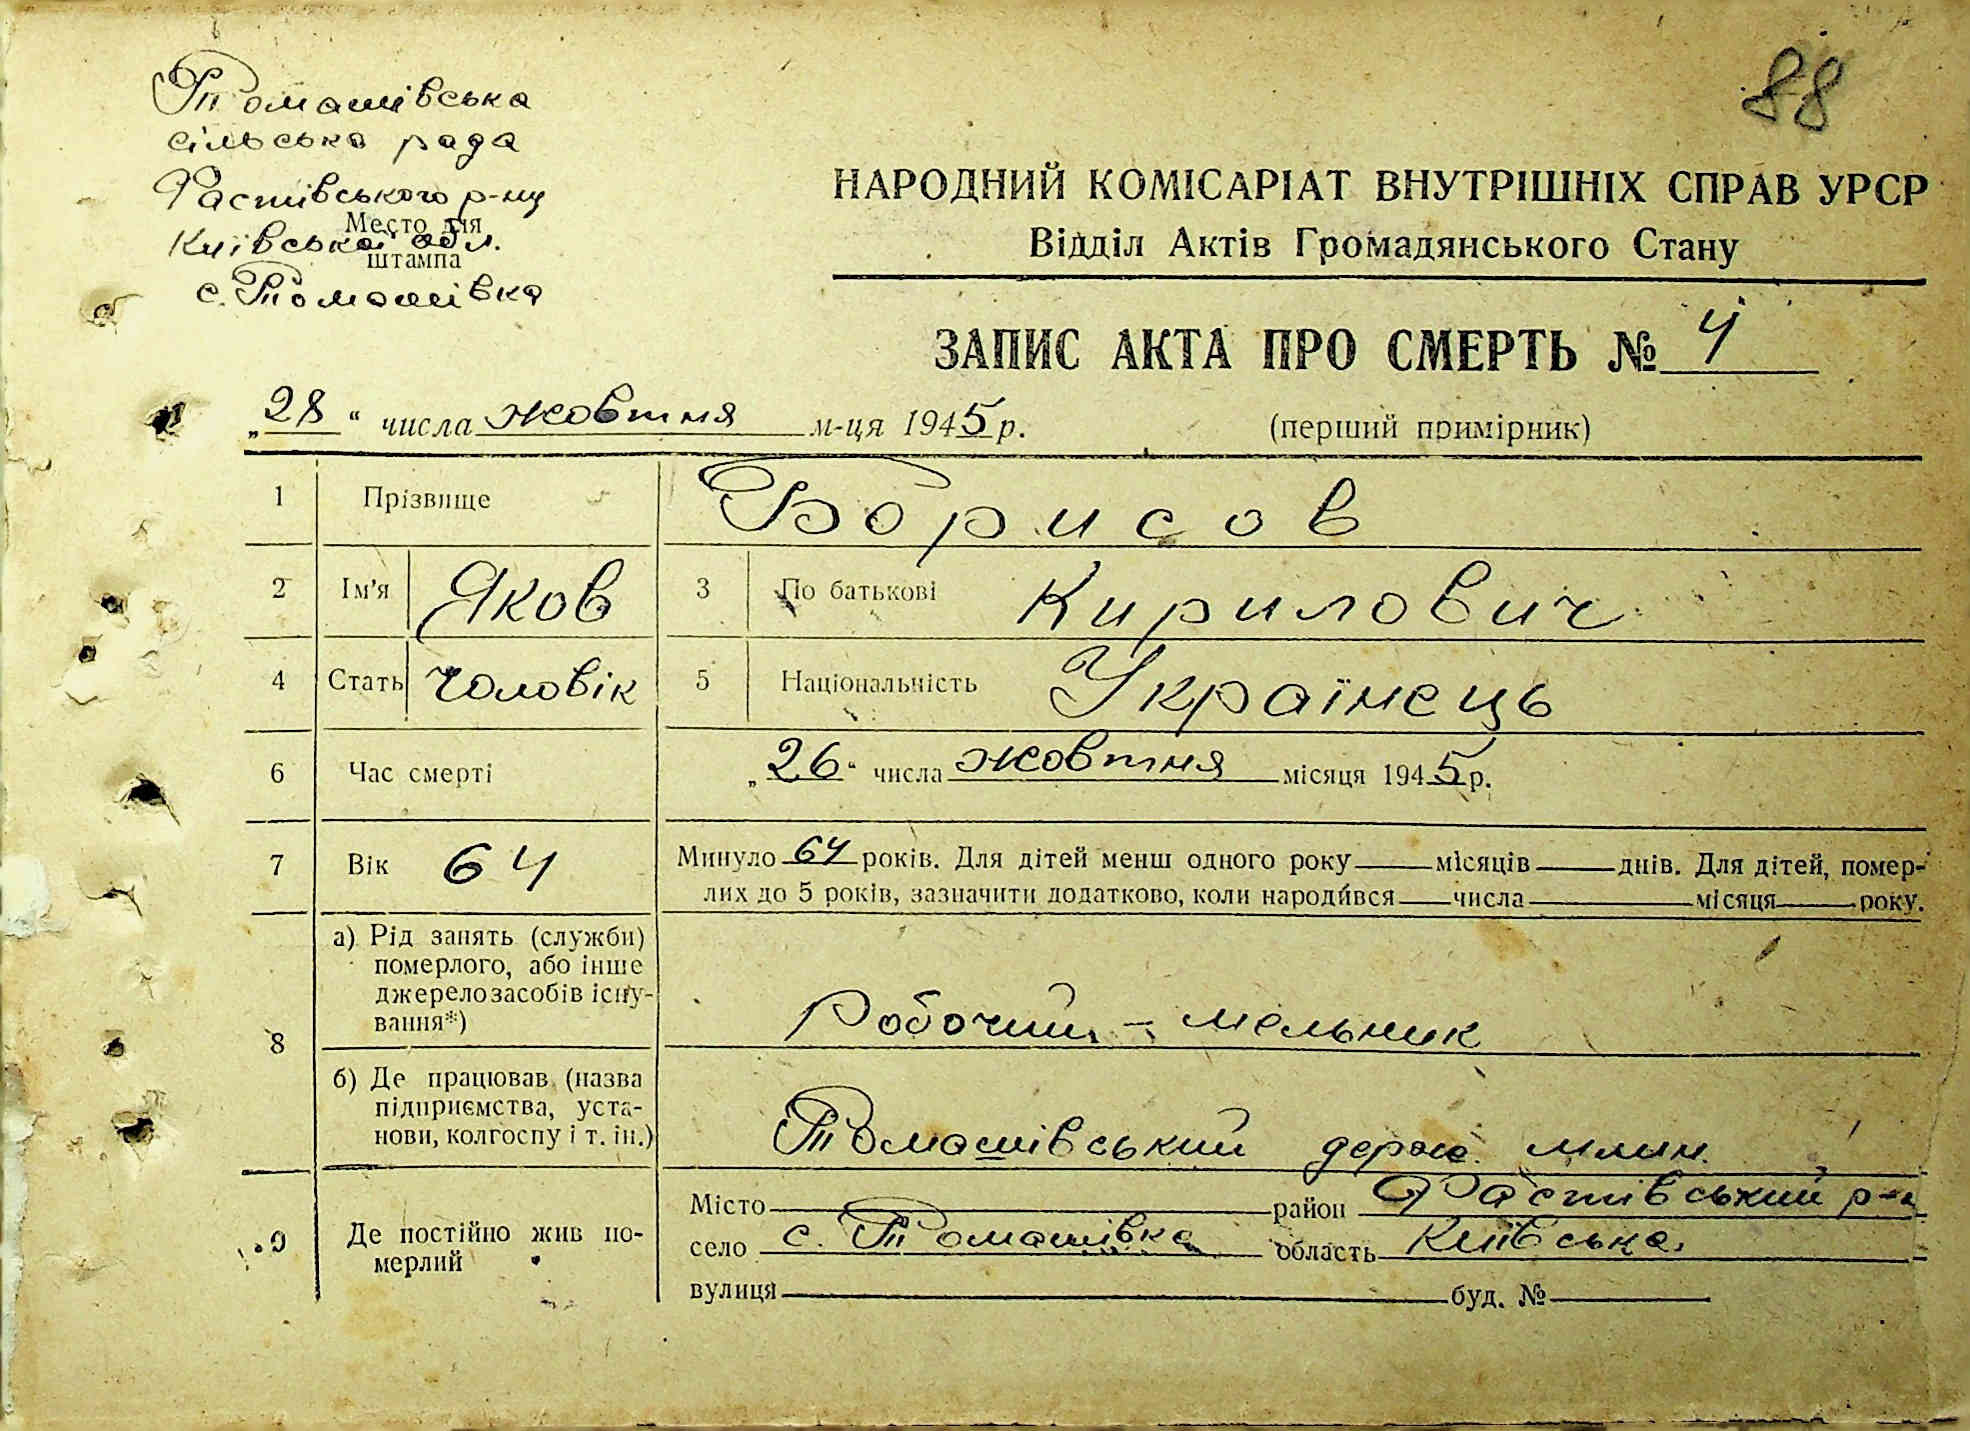 88
Томашівська
сільська рада
Фастівського р-ну
Место для
Київської обл.
штампа
с. Томашівка
НАРОДНИЙ КОМІСАРІАТ ВНУТРІШНІХ СПРАВ УРСР
Відділ Актів Громадянського Стану
ЗАПИС АКТА ПРО СМЕРТЬ № 4
„28“ числа жовтня м-ця 1945 р. (перший примірник)
1 Прізвище Борисов
2 Ім'я Яков 3 По батькові Кирилович
4 Стать чоловік 5 Національність Українець
6 Час смерті „26“ числа жовтня місяця 1945 р.
7 Вік 64 Минуло 64 років. Для дітей менш одного року місяців днів. Для дітей, помер-
лих до 5 років, зазначити додатково, коли народився числа місяця року.
8 а) Рід занять (служби)
померлого, або інше
джерело засобів існу-
вання*)
Робочий - мельник
б) Де працював (назва
підприємства, уста-
нови, колгоспу і т. ін.)
Томашівський держ. млин.
9 Де постійно жив по-
мерлий
Місто район Фастівський р-н
село с. Томашівка область Київська.
вулиця буд. №